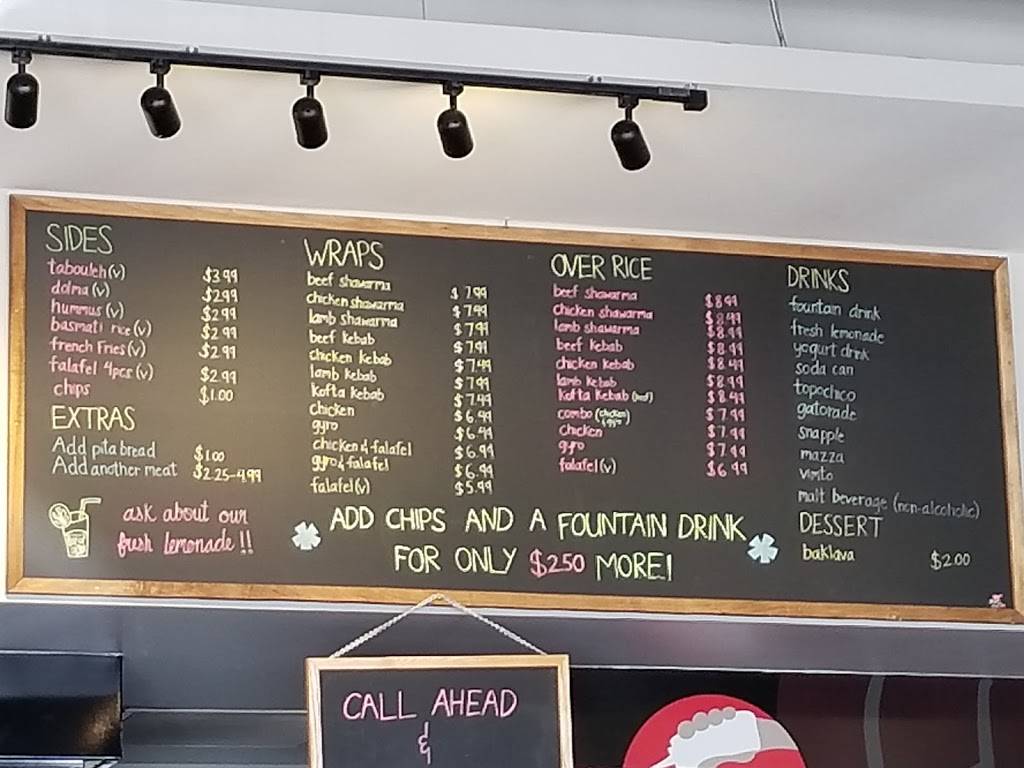 SIDES
tabouleh (v) $3.99
dolma (v) $2.99
hummus (v) $2.99
basmati rice (v) $2.99
french fries (v) $2.99
falafel 4pcs (v) $2.99
chips $1.00
EXTRAS
Add pita bread $1.00
Add another meat $2.25-4.99
ask about our
fresh lemonade!!
WRAPS
beef shawarma $7.99
chicken shawarma $7.99
lamb shawarma $7.99
beef kebab $7.99
chicken kebab $7.99
lamb kebab $7.99
kofta kebab $7.99
chicken $6.99
gyro $6.99
chicken & falafel $6.99
gyro & falafel $6.99
falafel (v) $5.99
OVER RICE
beef shawarma $8.99
chicken shawarma $8.99
lamb shawarma $8.99
beef kebab $8.99
chicken kebab $8.99
lamb kebab $8.99
kofta kebab (beef) $8.99
combo (chicken & gyro) $7.99
chicken $7.99
gyro $7.99
falafel (v) $6.99
DRINKS
fountain drink
fresh lemonade
yogurt drink
soda can
topochico
gatorade
snapple
mazza
vimto
malt beverage (non-alcoholic)
DESSERT
baklava $2.00
ADD CHIPS AND A FOUNTAIN DRINK
FOR ONLY $2.50 MORE!
CALL AHEAD
&